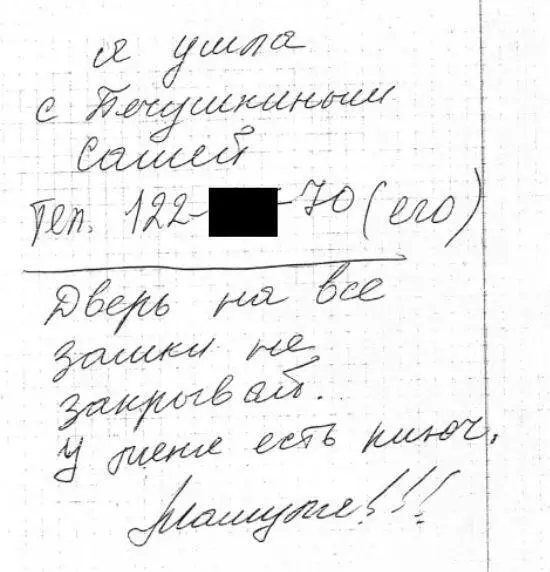 я ушла
с Пичушкиным
Сашей
Тел. 122- -70 (его)
Дверь на все
замки не
закрывай.
У меня есть ключ.
Мамуле!!!